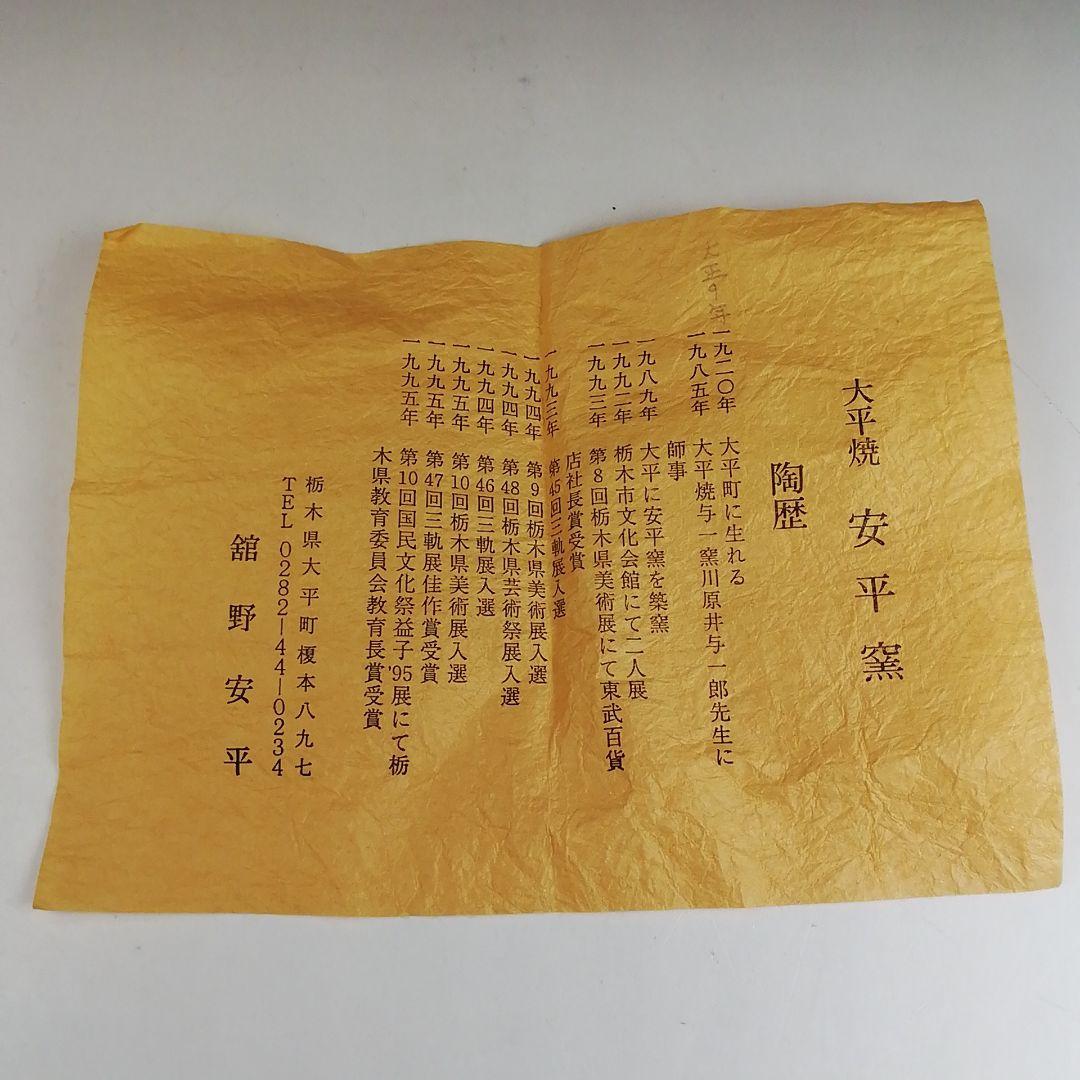 大平焼 安平窯
陶歴
大正9年
一九二〇年 大平町に生れる
一九八五年 大平焼与一窯川原井与一郎先生に
師事
一九八九年 大平に安平窯を築窯
一九九二年 栃木市文化会館にて二人展
一九九三年 第8回栃木県美術展にて東武百貨
店社長賞受賞
一九九三年 第45回三軌展入選
一九九四年 第9回栃木県美術展入選
一九九四年 第48回栃木県芸術祭展入選
一九九四年 第46回三軌展入選
一九九五年 第10回栃木県美術展入選
一九九五年 第47回三軌展佳作賞受賞
一九九五年 第10回国民文化祭益子'95展にて栃
木県教育委員会教育長賞受賞
栃木県大平町榎本八九七
TEL 0282-44-0234
舘野安平